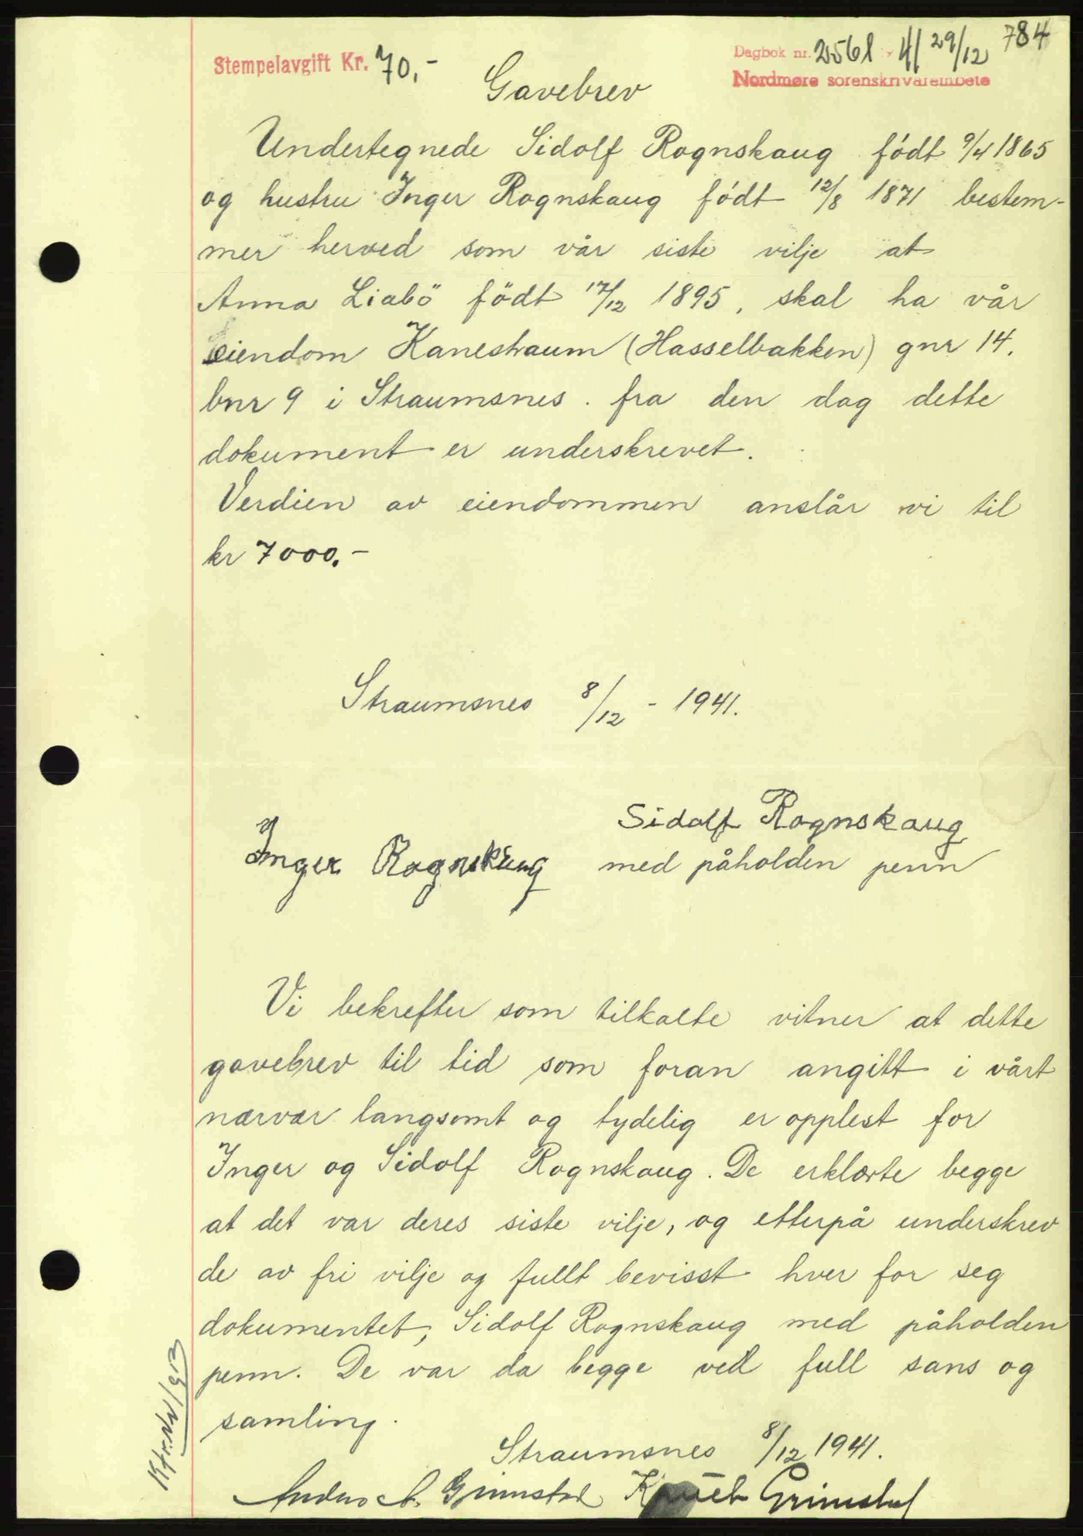 784
Stempelavgift Kr. 70,-
Dagbok nr. 2561 - 41 29/12
Nordmøre sorenskriverembete
Gavebrev
Undertegnede Sidolf Rognskaug født 9/4 1865
og hustru Inger Rognskaug født 12/8 1871 bestem-
mer herved som vår siste vilje at
Anna Liabö födt 17/12 1895, skal ha vår
eiendom Kanestraum (Hasselbakken) gnr 14.
bnr 9 i Straumsnes. fra den dag dette
dokument er underskrevet.
Verdien av eiendommen anslår vi til
kr 7000.-
Straumsnes 8/12 - 1941.
Sidolf Rognskaug
Inger Rognskaug med påholden penn
Vi bekrefter som tilkalte vitner at dette
gavebrev til tid som foran angitt i vårt
nærvær langsomt og tydelig er opplest for
Inger og Sidolf Rognskaug. De erklærte begge
at det var deres siste vilje, og etterpå underskrev
de av fri vilje og fullt bevisst hver for seg
dokumentet, Sidolf Rognskaug med påholden
penn. De var da begge ved full sans og
samling.
Straumsnes 8/12 1941.
Anders A. Grimstad Grimstad